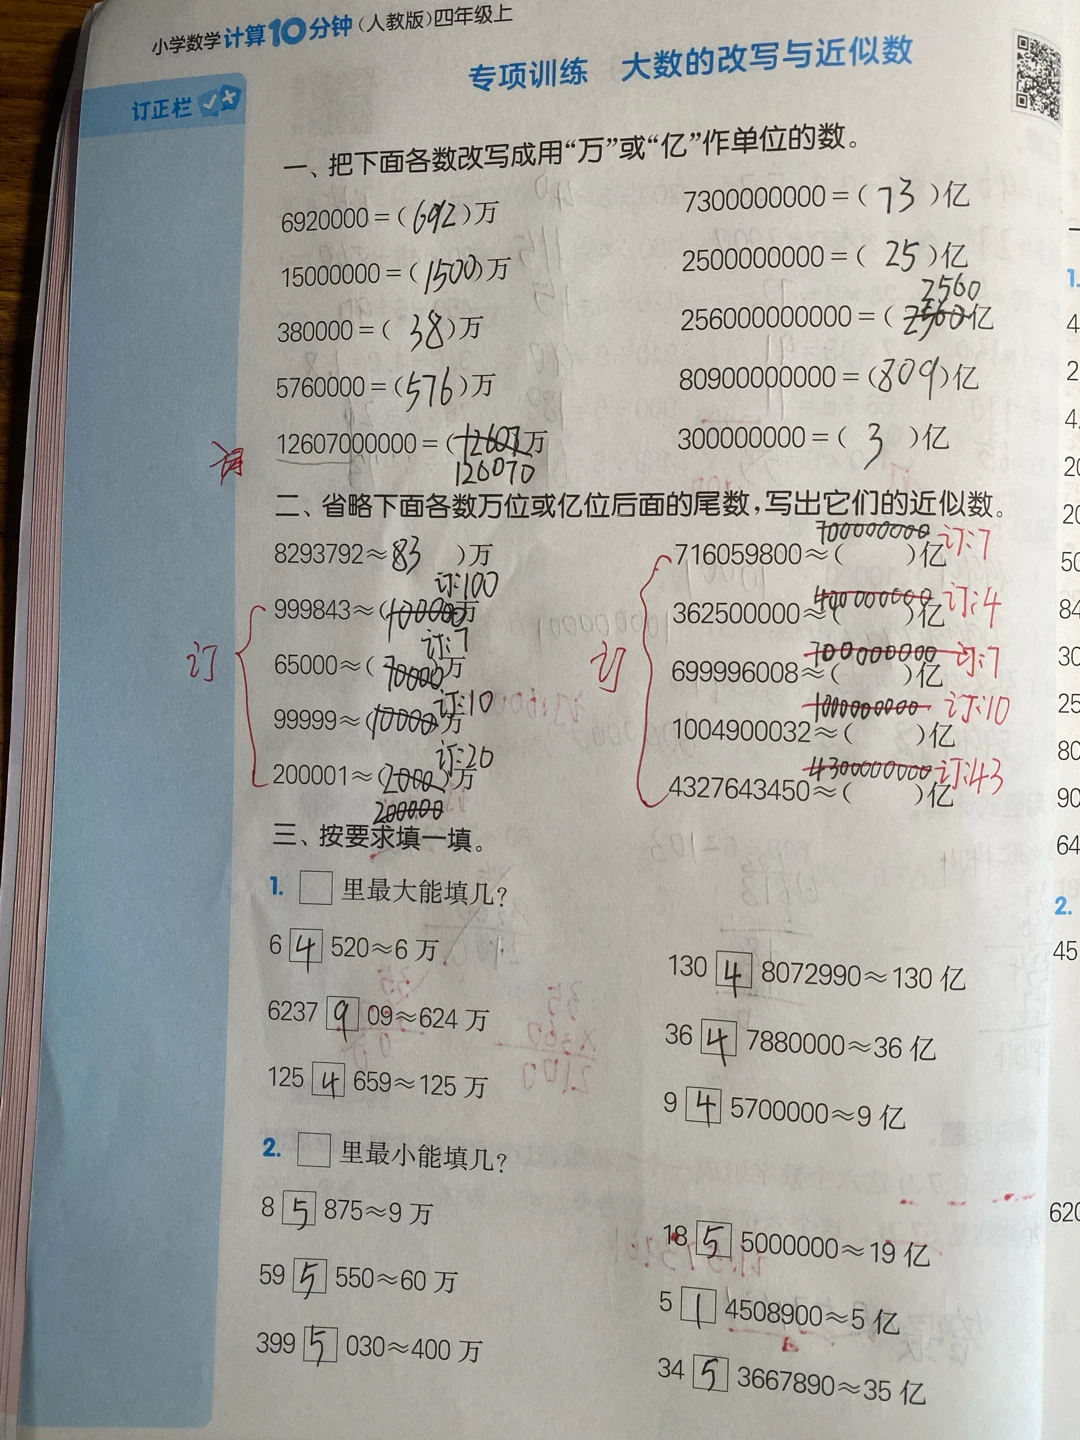 小学数学计算10分钟(人教版)四年级上
专项训练 大数的改写与近似数
订正栏
一、把下面各数改写成用“万”或“亿”作单位的数。
6920000=(692)万 7300000000=(73)亿
15000000=(1500)万 2500000000=(25)亿
2560
380000=(38)万 256000000000=(2560)亿
5760000=(576)万 80900000000=(809)亿
12607000000=(12607)万 300000000=(3)亿
126070
二、省略下面各数万位或亿位后面的尾数,写出它们的近似数。
700000000
8293792≈83 )万 716059800≈( )亿 订:7
订:100 400000000
999843≈(100000万 362500000≈( )亿 订:4
订:7 700000000
订 65000≈(70000万 订 699996008≈( )亿 订:7
订:10 1000000000
99999≈(10000万 1004900032≈( )亿 订:10
订:20 4300000000
200001≈(2000)万 4327643450≈( )亿 订:43
200000
三、按要求填一填。
1. □里最大能填几?
6 4 520≈6 万 130 4 8072990≈130 亿
6237 9 09≈624 万 36 4 7880000≈36 亿
125 4 659≈125 万 9 4 5700000≈9 亿
2. □里最小能填几?
8 5 875≈9 万 18 5 5000000≈19 亿
59 5 550≈60 万 5 1 4508900≈5 亿
399 5 030≈400 万 34 5 3667890≈35 亿